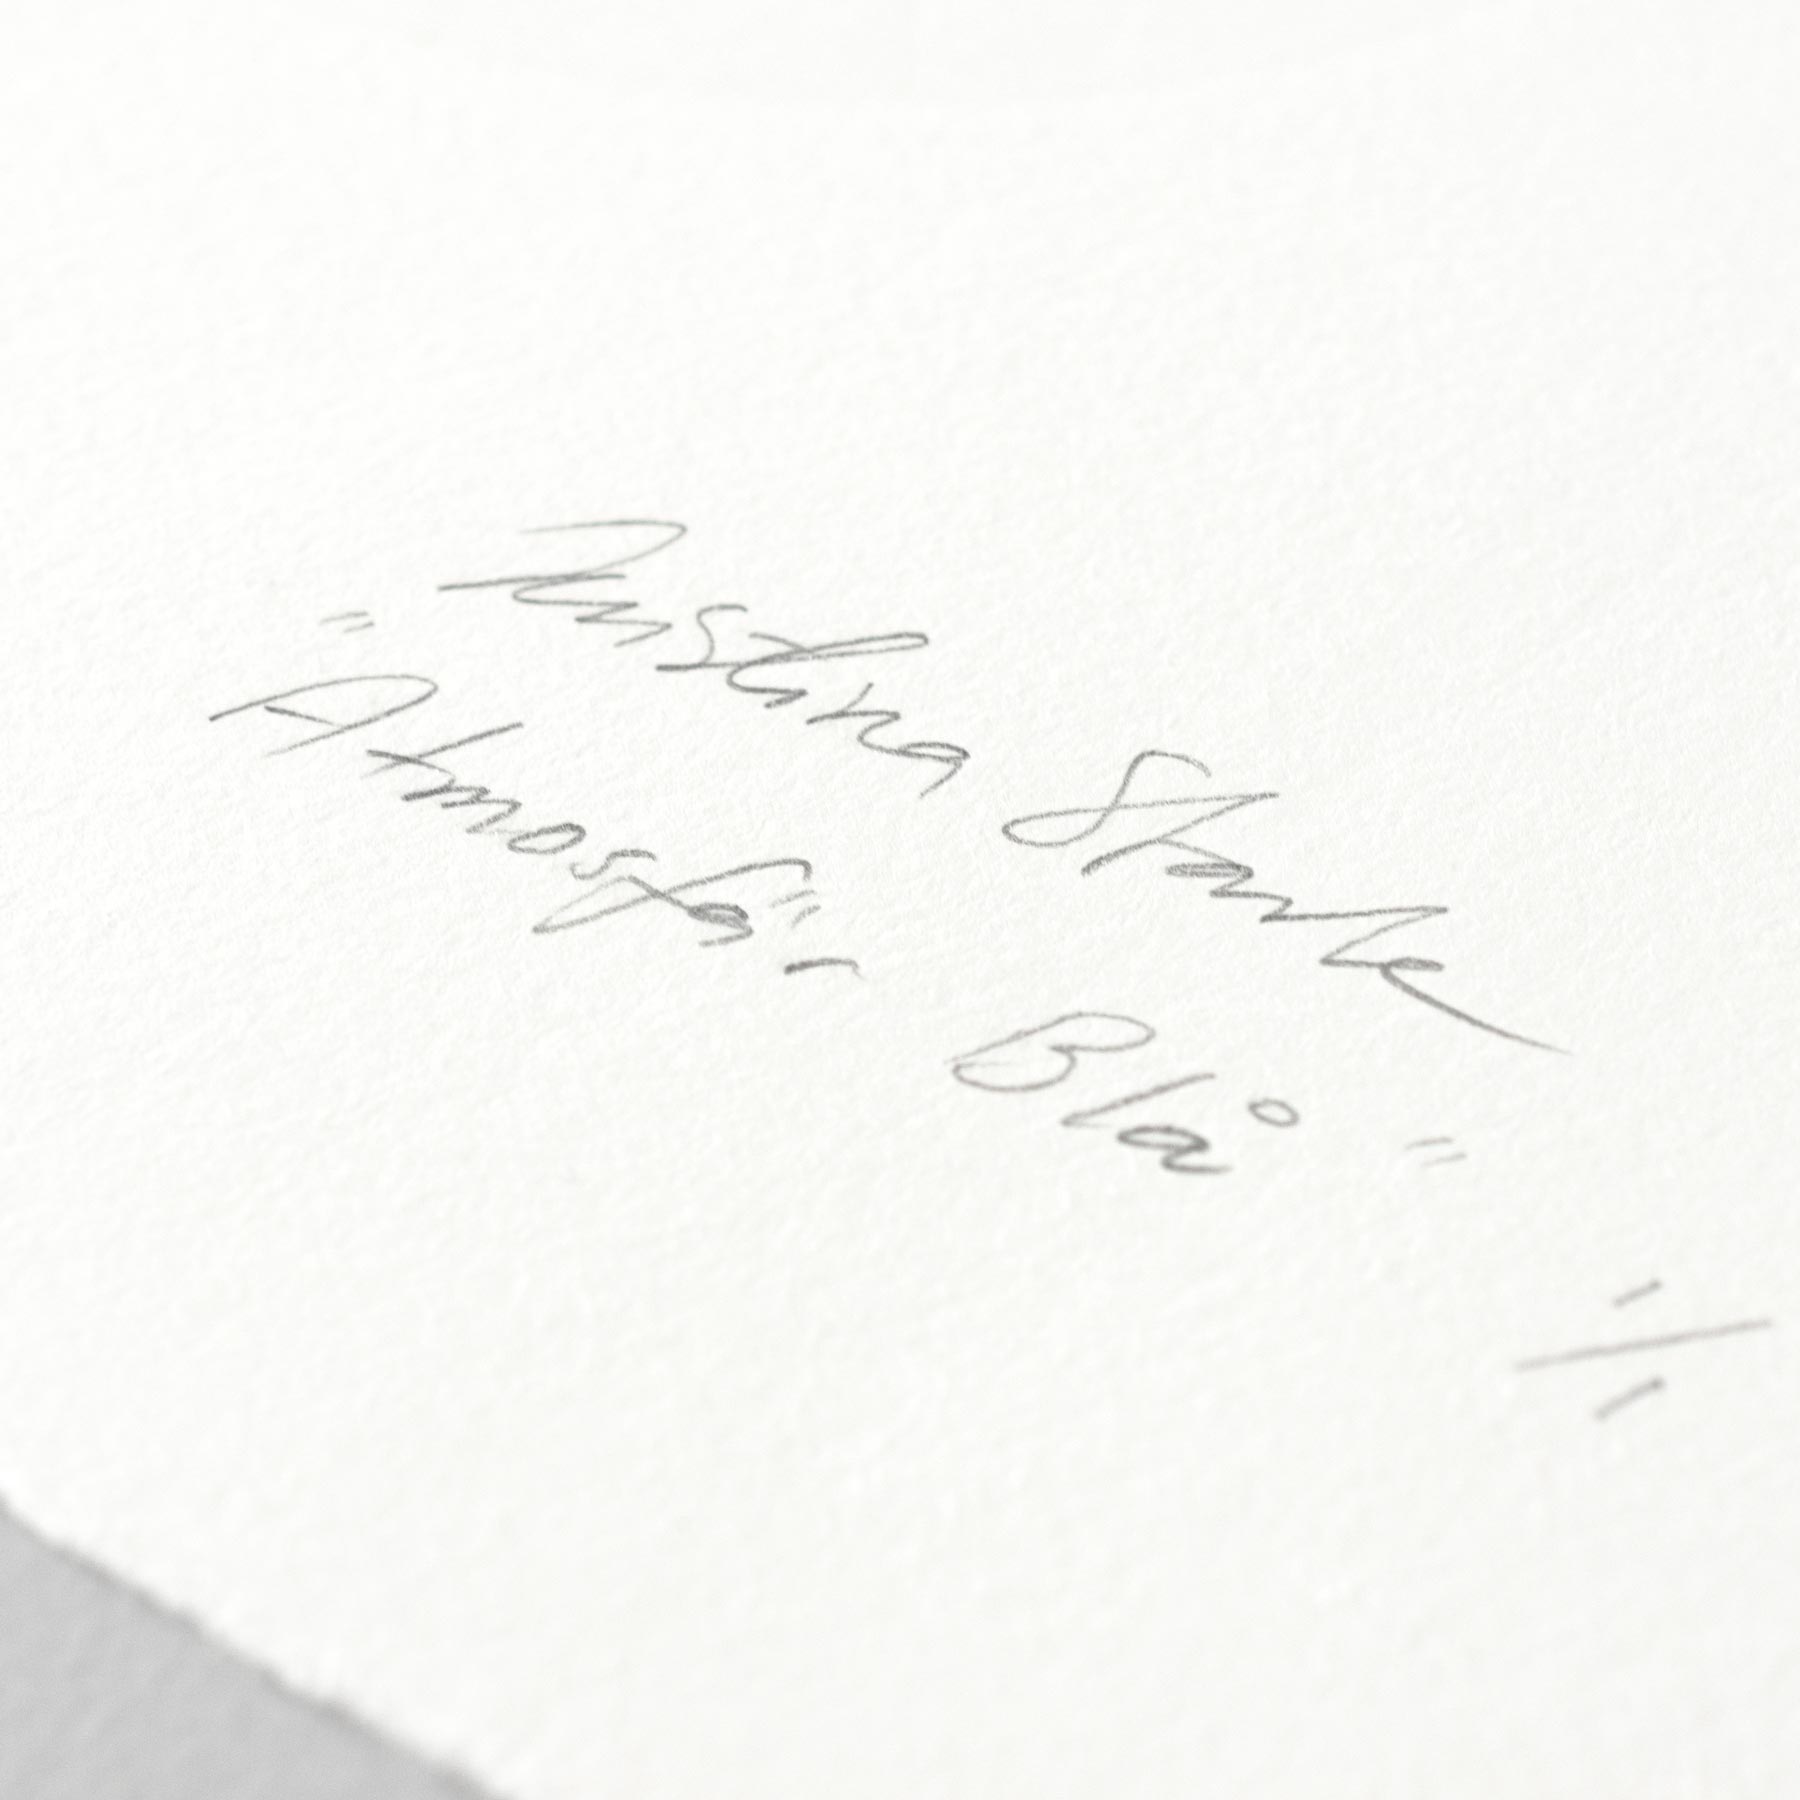 Kristina Stark
"Atmosfär Blå"
1/1